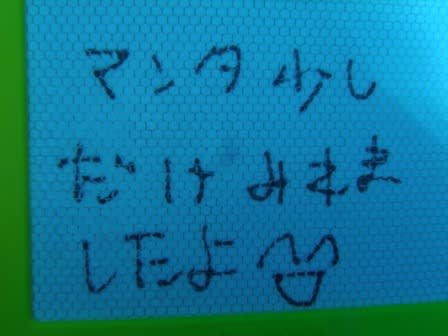 マンタ少し
だけみえま
したよ